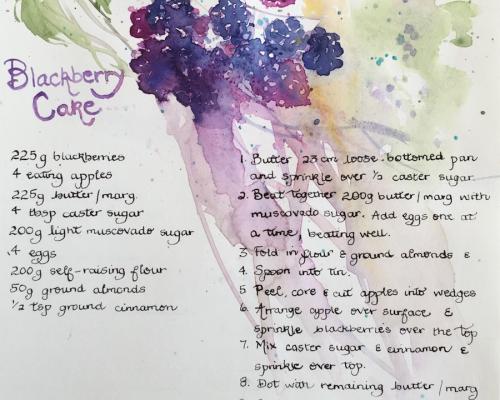 Blackberry
Cake
225g blackberries
4 eating apples
225g butter/marg.
4 tbsp caster sugar
200g light muscovado sugar
4 eggs
200g self-raising flour
50g ground almonds
½ tsp ground cinnamon
1. Butter 23 cm loose-bottomed pan
and sprinkle over ½ caster sugar
2. Beat together 200g butter/marg with
muscovado sugar. Add eggs one at
a time, beating well.
3. Fold in flour & ground almonds &
4. Spoon into tin.
5 Peel, core & cut apples into wedges
6. Arrange apple over surface &
sprinkle blackberries over the top
7. Mix caster sugar & cinnamon &
sprinkle over top.
8. Dot with remaining butter/marg